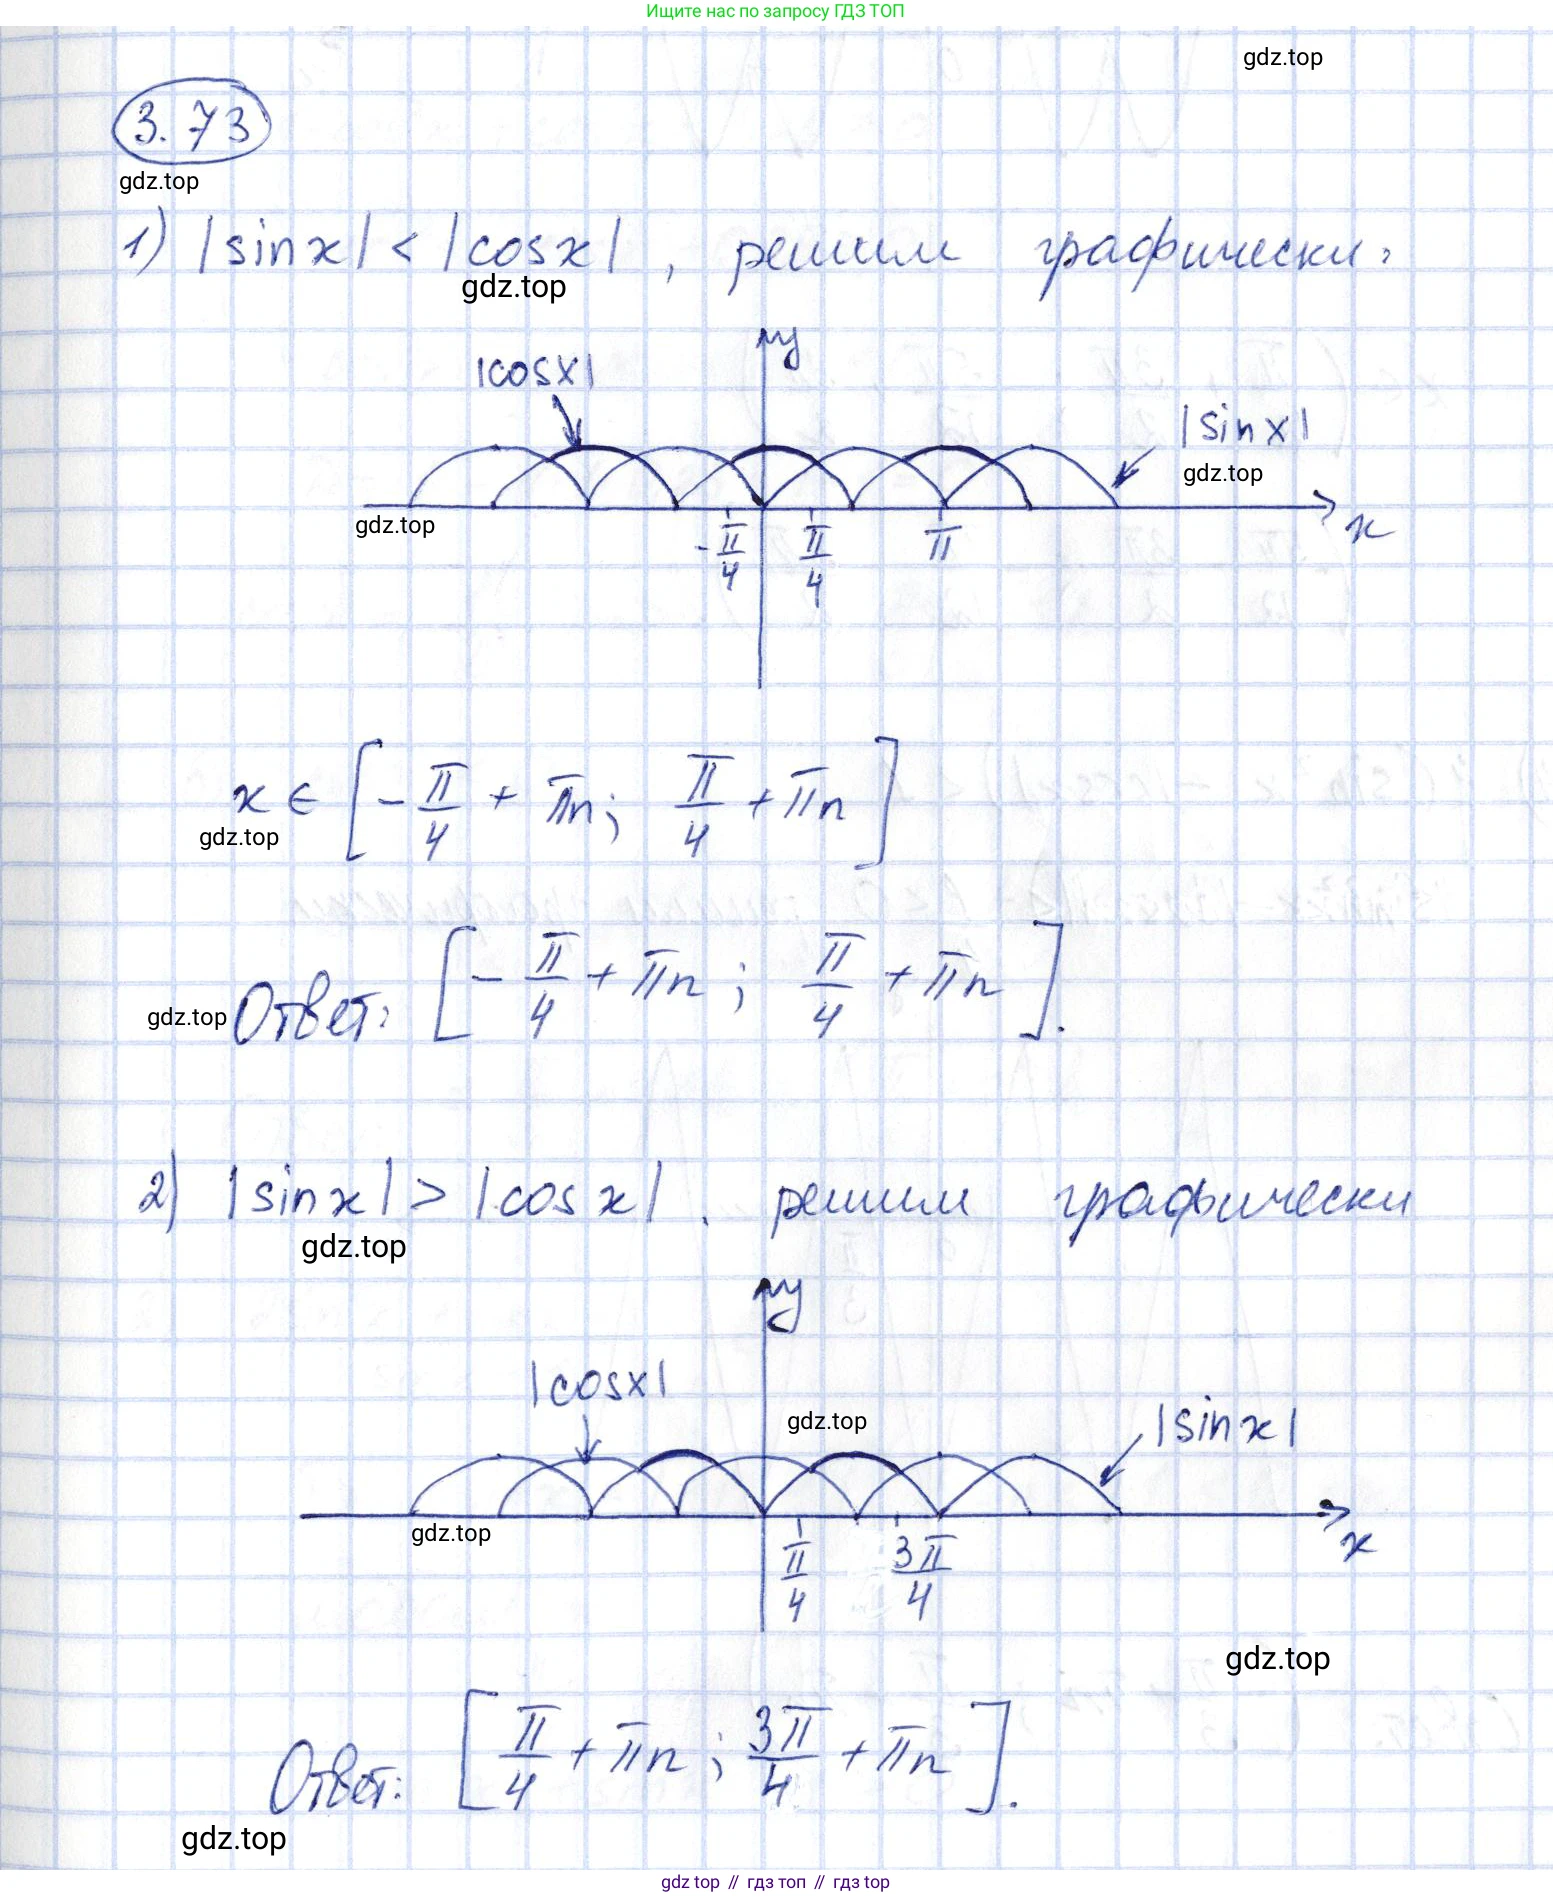 Ищите нас по запросу ГДЗ ТОП
gdz.top
3.73
gdz.top
1) |sinx| < |cosx|, решим графически:
gdz.top
y
|cosx|
|sinx|
gdz.top
gdz.top
x
-π/4 π/4 π
x ∈ [-π/4 + πn; π/4 + πn]
gdz.top
Ответ: [-π/4 + πn; π/4 + πn].
gdz.top
2) |sinx| > |cosx|. решим графически
gdz.top
y
|cosx|
gdz.top
|sinx|
gdz.top
x
π/4 3π/4
gdz.top
Ответ: [π/4 + πn; 3π/4 + πn].
gdz.top
gdz.top // гдз топ // гдз top